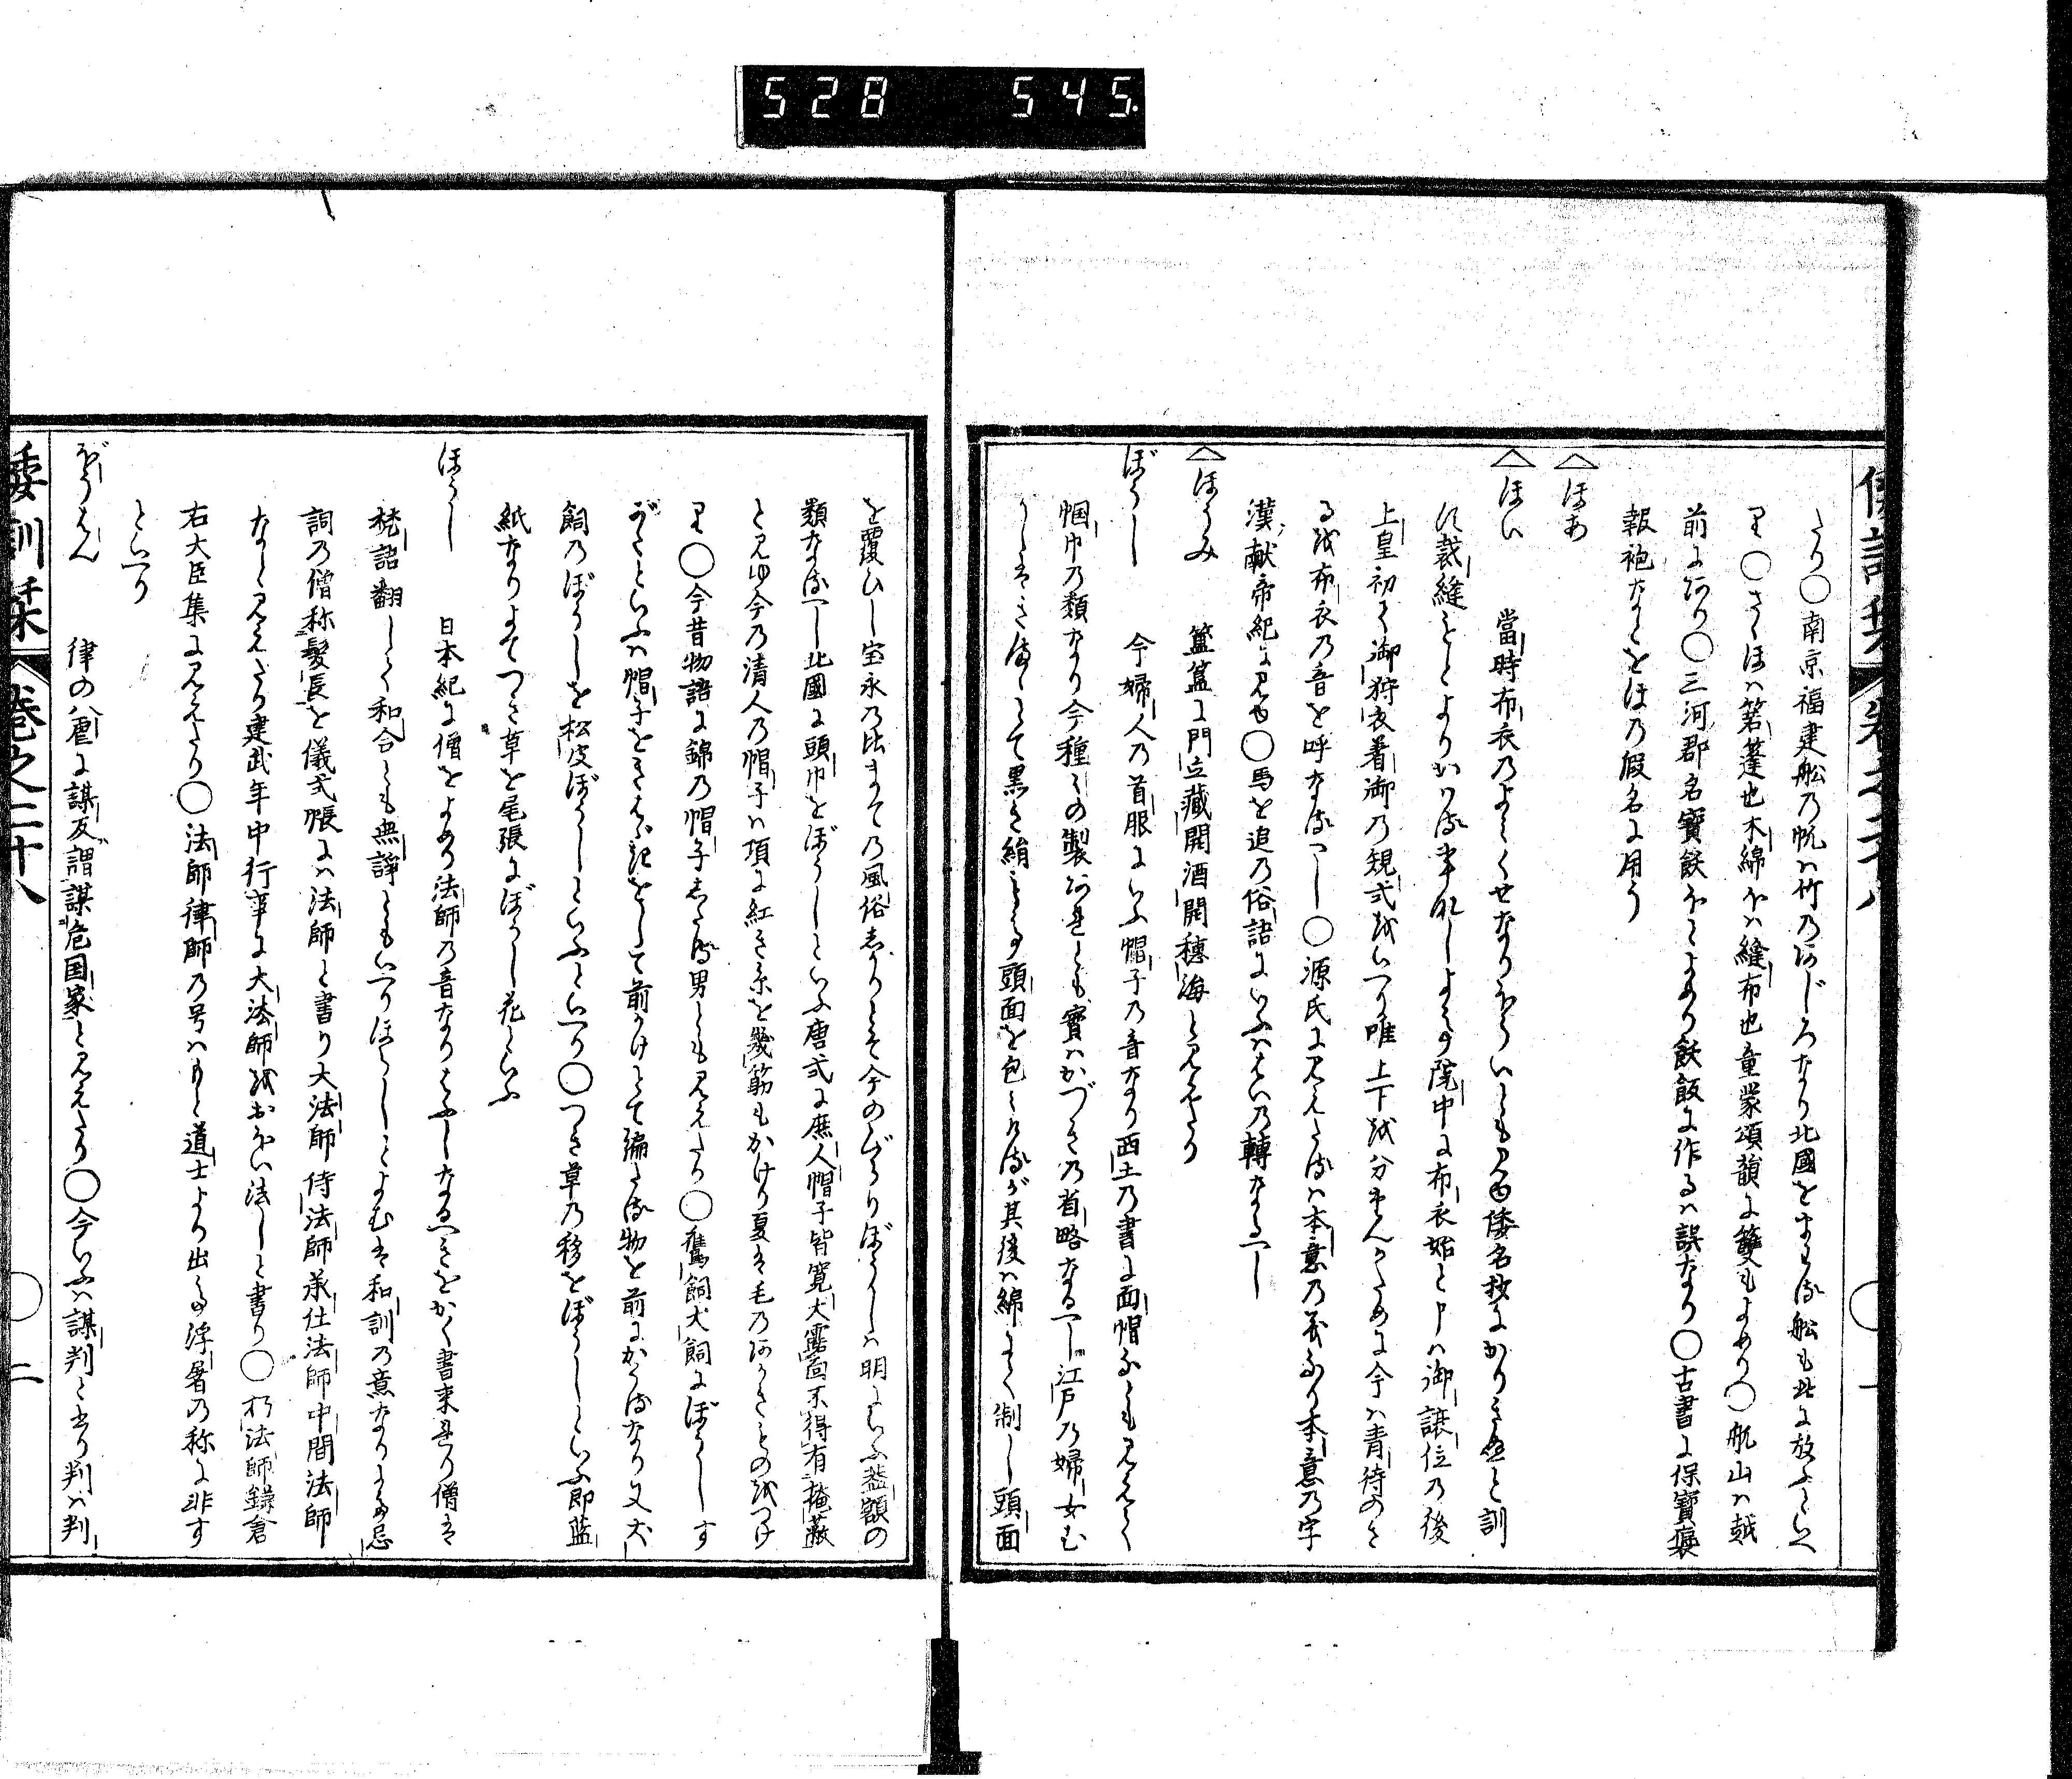 528 545
倭訓栞 巻之二十八 ○ 一
たり○南京福建舩乃帆ハ竹乃あじろなり北國をまはる舩も此に放ふといへ
り○さくほハ䈞蓬也木綿ほハ縫布也童蒙頌韻に䉶もよめり○帆山ハ越
前にあり○三河郡名寶飫ほとよめり飫飯に作るハ誤なり○古書に保寶褒
報袍などをほ乃假名に用う
△ほあ
△ほい 當時布衣乃よくくせなりほういとも見ゆ倭名抄にかりきぬと訓
に裁縫をとよりかハる事ハなしよそ乃院中に布衣始と申ハ御譲位乃後
上皇初て御狩衣着御乃規式をいへり唯上下を分たんかために今ハ青侍のき
るを布衣乃音を呼なるへし○源氏に見えたるハ本意乃義なり本意乃字
漢献帝紀に見ゆ○馬を追乃俗語にいふハはい乃轉なるへし
△ほうみ 簠簋に門立藏開酒開穗海と見えたり
ぼうし 今婦人乃首服にいふ帽子乃音なり西土乃書に面帽ふとも見えて
幗巾乃類なり今種々の製あれとも實ハかづき乃省略なるへし江戸乃婦女む
かしはきほくして黒き絹をもて頭面を包みけるが其後ハ綿にて制し頭面
を覆ひし宝永乃比まて乃風俗しかりとそ今のひらりぼうしハ明にいふ蓋額の
類なるへし北國に頭巾をぼうしといふ唐式に庶人帽子皆寛大露面不得有掩蔽
と見ゆ今乃清人乃帽子ハ頂に紅き糸を幾筋もかけり夏は毛乃あかきものをつけ
り○今昔物語に錦乃帽子したる男とも見えたり○鷹飼犬飼にぼうしす
がたといふハ帽子をきはおをして前かけとて編たる物を前にかくるなり又犬
飼乃ぼうしを松皮ぼうしといふといへり○つき草乃移をぼうしといふ即藍
紙なりよてつき草を尾張にぼうし花といふ
ほうし 日本紀に僧をよめり法師乃音なりはふしなるへきをかく書来れり僧は
梵語翻して和合とも無諍ともいへりほうしとよむは和訓乃意なりよる忌
詞乃僧称髪長を儀式帳にハ法師と書り大法師侍法師承仕法師中間法師
なと見えたり建武年中行事に大法師をおほい法しと書り○朽法師鎌倉
右大臣集に見えたり○法師律師乃号ハもと道士より出る浮屠乃称に非す
といへり
ぼうはん 律の八虐に謀反謂謀危国家と見えたり○今いふハ謀判と書り判ハ判
倭訓栞 巻之二十八 ○ 二